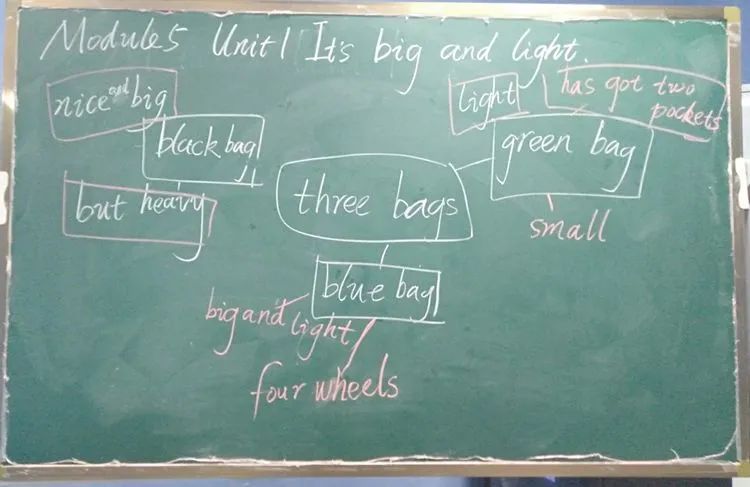 Module5 Unit1 It's big and light.
nice and big
light
has got two
pockets
black bag
green bag
three bags
but heavy
small
blue bag
big and light
four wheels